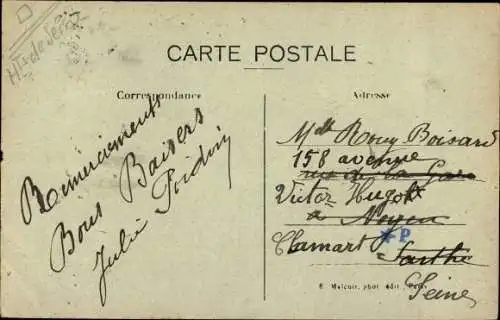 CARTE POSTALE
Correspondance
Remerciements
Bons Baisers
Julie
Adresse
Melle Rouy Boisard
158 avenue
rue de la Gare
Victor Hugo
a Noyen
Clamart
*P
Sarthe
Seine
phot. édit.